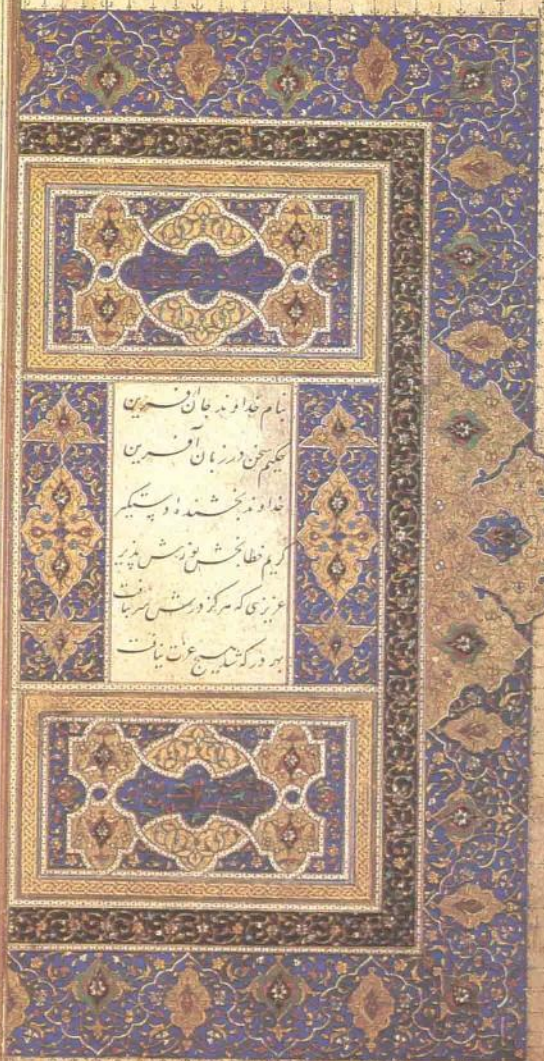 بنام خداوند جان آفرین
حکیم سخن در زبان آفرین
خداوند بخشنده و دستگیر
کریم خطابخش پوزش پذیر
عزیزی که هرکز درش سر بتافت
بهر در که شد هیچ عزت نیافت